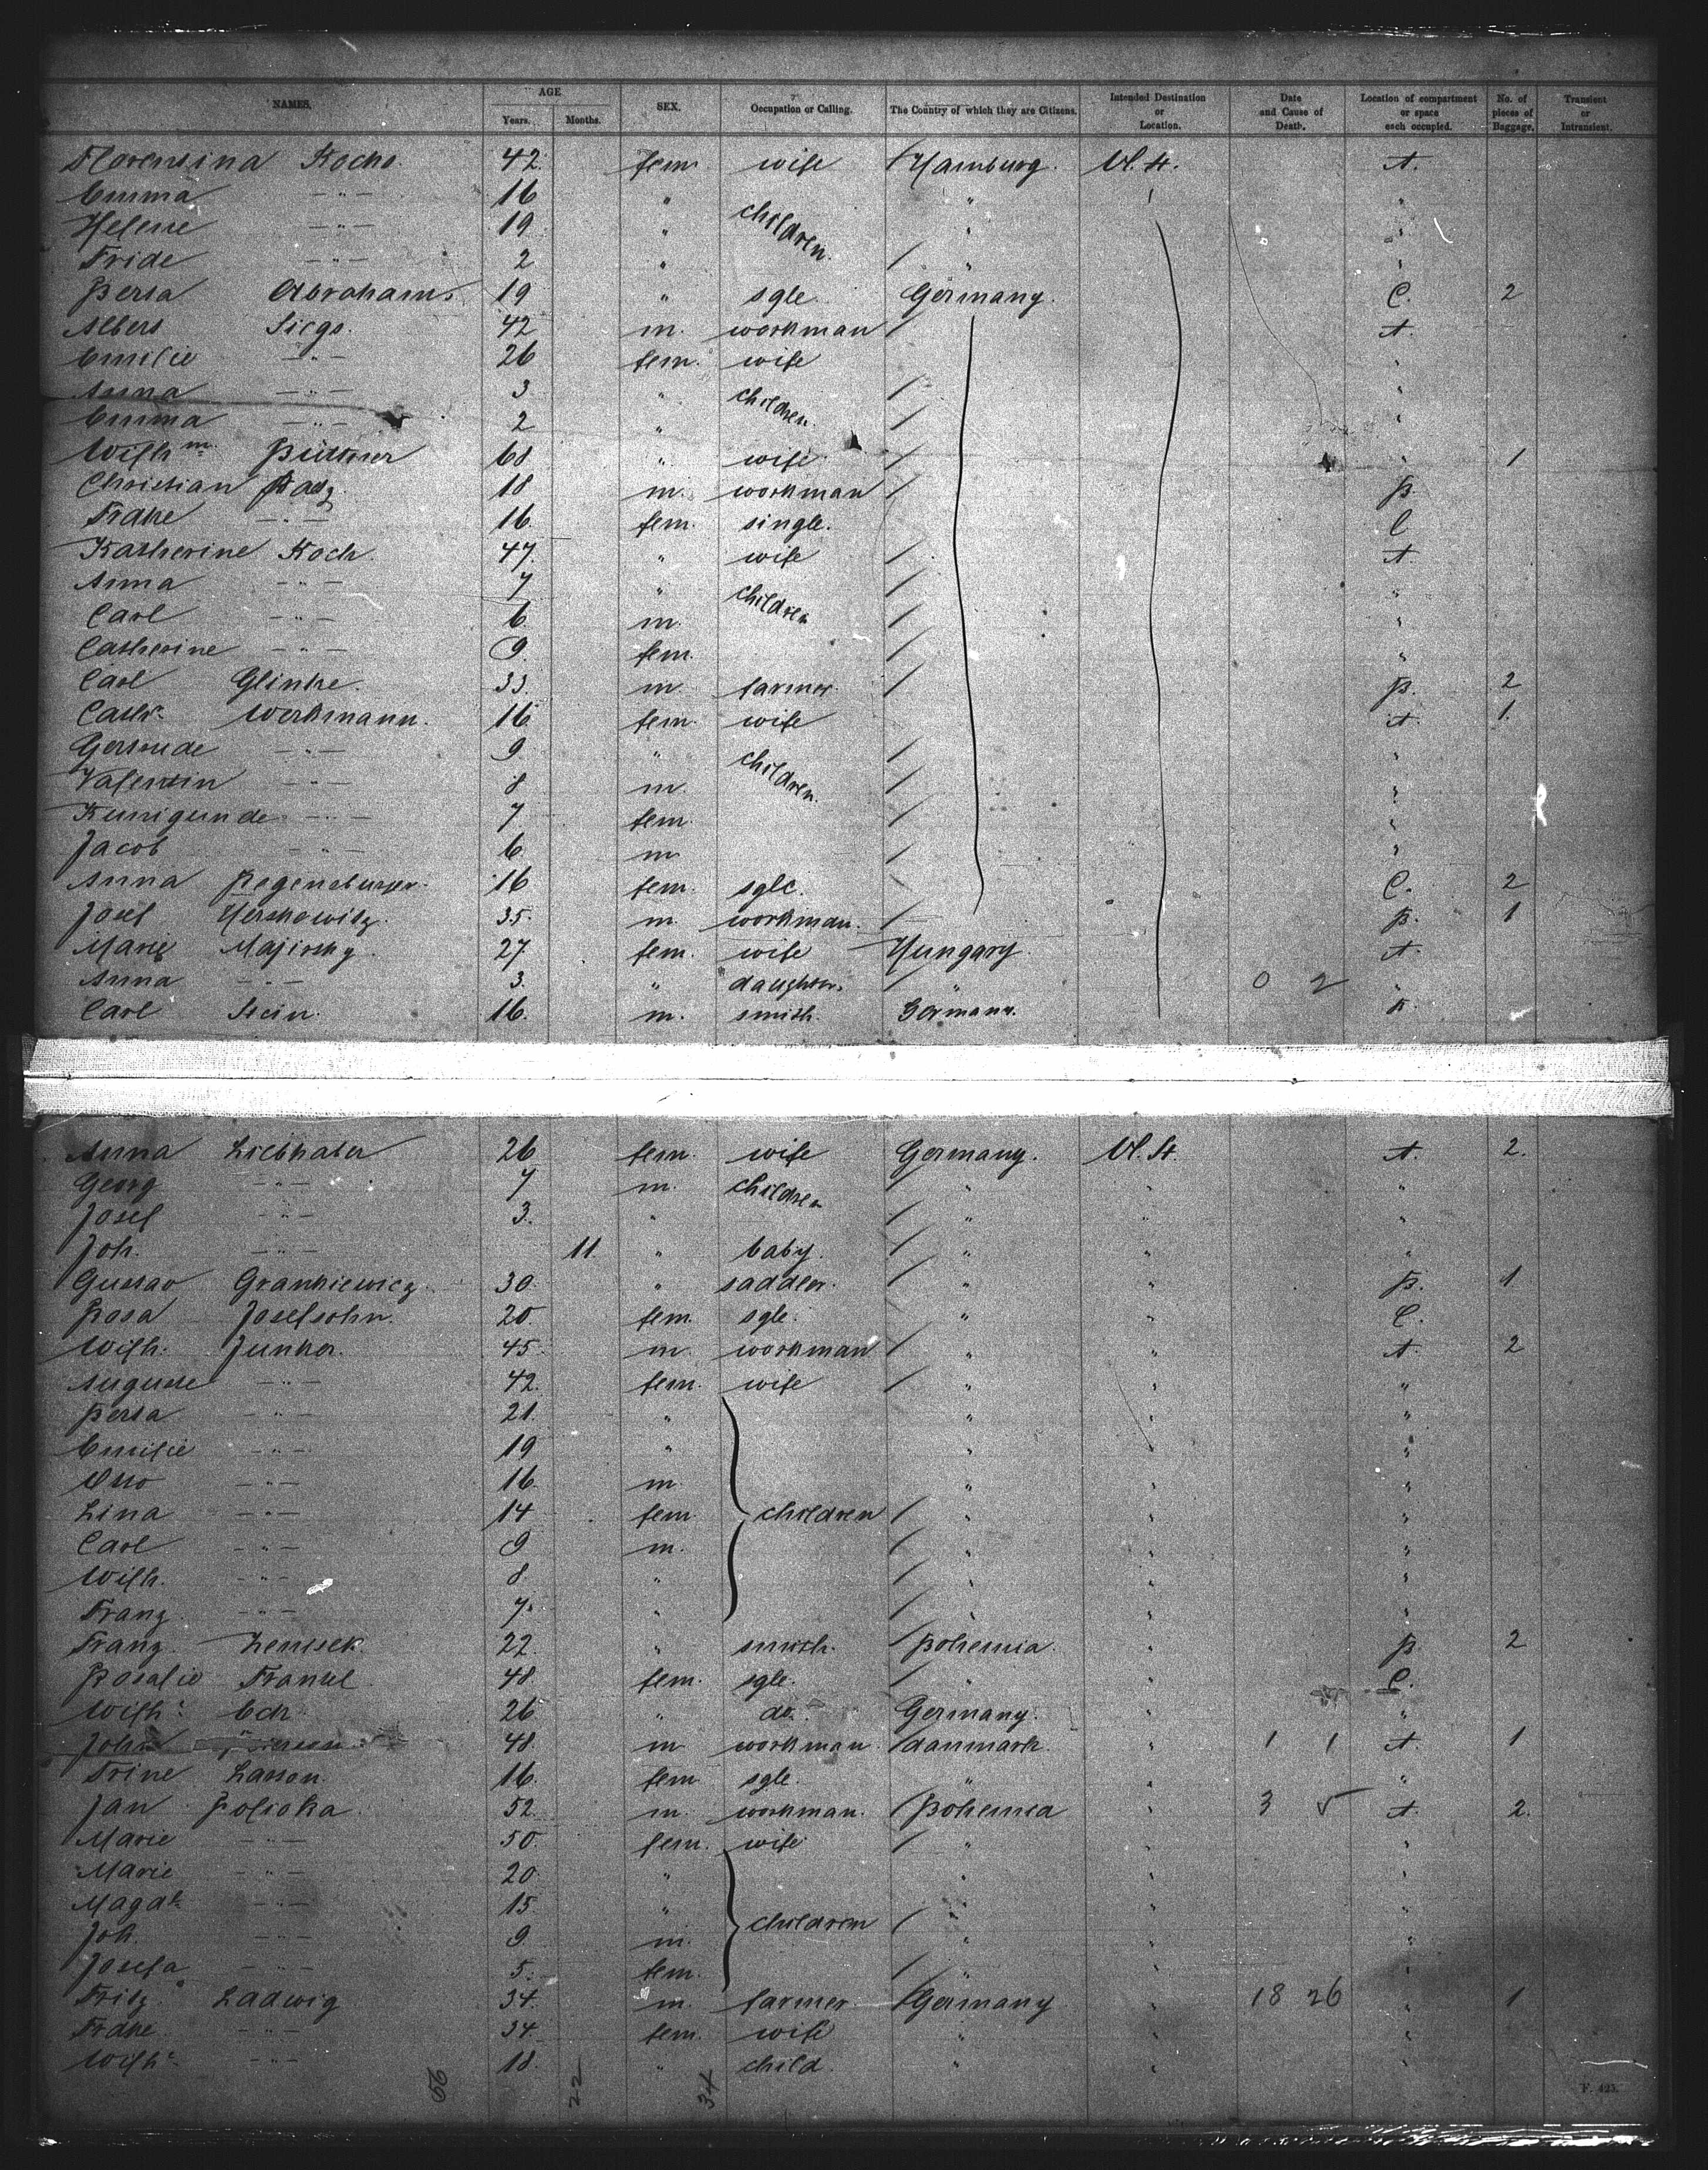 NAMES. AGE Years. Months. SEX. Occupation or Calling. The Country of which they are Citizens. Intended Destination or Location. Date and Cause of Death. Location of compartment or space each occupied. No. of pieces of Baggage. Transient or Intransient.
Florentina Kochs 42 fem. wife Hamburg. U.St. A.
Emma —"— 16 " children " "
Helene —"— 19 " " "
Fride —"— 2 " " "
Berta Abrahams 19 " sgle Germany. C. 2
Albert 42 m. workman A.
Emilie —"— 26 fem. wife "
Anna —"— 3 " children "
Emma —"— 2 " "
Wilhm. Büttner 68 " wife " 1
Christian 18 m. workman B.
Frdke —"— 16. fem. single. C
Katherine Koch. 47. " wife A.
Anna —"— 7 " children "
Carl —"— 6 m. "
Catherine —"— 9. fem. "
Carl Glinke. 33. m farmer. B. 2
Cath. Werkmann. 16 fem. wife A. 1.
Gertrude —"— 9. " children "
Valentin —"— 8 m. "
Kunigunde —"— 7 fem. "
Jacob —"— 6. m "
Anna Regensburger. 16 fem. sgle. C. 2
Josef Hershowitz. 35. m. workman. B. 1
Marie Majirsky 27 fem. wife Hungary. A.
Anna —"— 3. " daughter. " 0 2 "
Carl Stein. 16. m. smith. Germany.
Anna Liebhaber 26 fem. wife Germany. U.St. A. 2.
Georg —"— 7 m. children " " "
Josef —"— 3. " " " "
Joh. —"— 11 " baby. " " "
Gustav Grankiewicz. 30 " saddler. " " B. 1
Rosa Josefsohn. 20. fem. sgle. " " C.
Wilh. Junker. 45. m. workman " " A. 2
Auguste —"— 42. fem. wife " " "
Berta —"— 21. " " " "
Emilie —"— 19 " " " "
Otto —"— 16. m " " "
Lina —"— 14 fem children " " "
Carl —"— 9 m. " " "
Wilh. —"— 8 " " " "
Franz —"— 7. " " " "
Franz. 22. " smith. Bohemia. " B. 2
Rosalie Frankel 48. fem. sgle. " " C.
Wilh. Eck. 26 " do. Germany. " "
John 48. m workman. danmark. " 1 1 A. 1
Trine Lasson. 16. fem. sgle. " " "
Jan Policka. 52. m. workman. Bohemia " 3 5 A. 2.
Marie —"— 50. fem. wife " " "
Marie —"— 20. " " " "
Magd. —"— 15. " children " " "
Joh. —"— 9 m. " " "
Josefa —"— 5. fem. " " "
Fritz Ladwig 34. m. farmer. Germany " 18 26 " 1
Frdke. —"— 34 fem. wife " " "
Wilh. —"— 18. " child. " " "
56 22 34
F. 425.